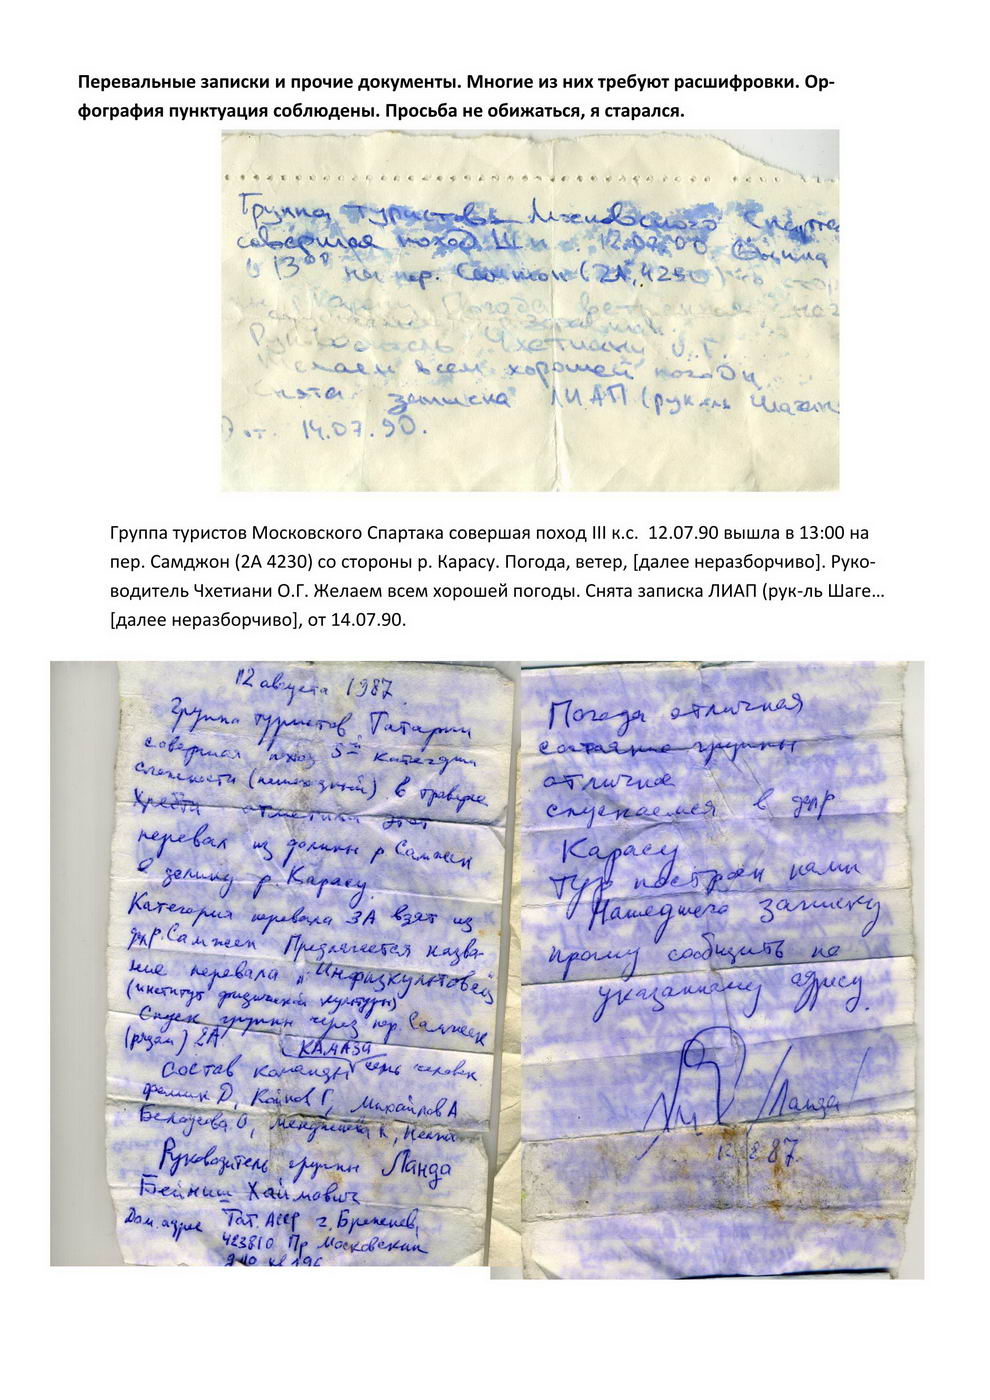 Перевальные записки и прочие документы. Многие из них требуют расшифровки. Ор-
фография пунктуация соблюдены. Просьба не обижаться, я старался.
Группа туристов Московского Спартака
совершая поход III к.с. 12.07.90 вышла
в 13⁰⁰ на пер. Самжон (2А, 4250) со стор
Погода ветренная
Руководитель Чхетиани О.Г.
Желаем всем хорошей погоды
Снята записка ЛИАП (рук-ль
от 14.07.90.
Группа туристов Московского Спартака совершая поход III к.с.  12.07.90 вышла в 13:00 на
пер. Самджон (2А 4230) со стороны р. Карасу. Погода, ветер, [далее неразборчиво]. Руко-
водитель Чхетиани О.Г. Желаем всем хорошей погоды. Снята записка ЛИАП (рук-ль Шаге...
[далее неразборчиво], от 14.07.90.
12 августа 1987
Группа туристов Татарии
совершая поход 5ой категории
сложности (пешеходный) в траверсе
хребта отметили этот
перевал из долины р Самжен
в долину р. Карасу.
Категория перевала 3А взят из
дол р. Самжен Предлагается назва-
ние перевала „Инфизкультовец"
(институт физической культуры)
Спуск группы через пер. Самжен
(рядом) 2А
КАМАЗа
Состав команды семь человек
Фомин Д, Койнов Г, Михайлов А
Белоусова О,
Руководитель группы Ланда
Бейниш Хаймович
Дом. адрес Тат. АССР г. Брежнев,
423810 Пр Московский
Погода отличная
состояние группы
отличное
спускаемся в дол р
Карасу
Тур построен нами
Нашедшего записку
прошу сообщить по
указанному адресу.
/Ланда/
12.8.87